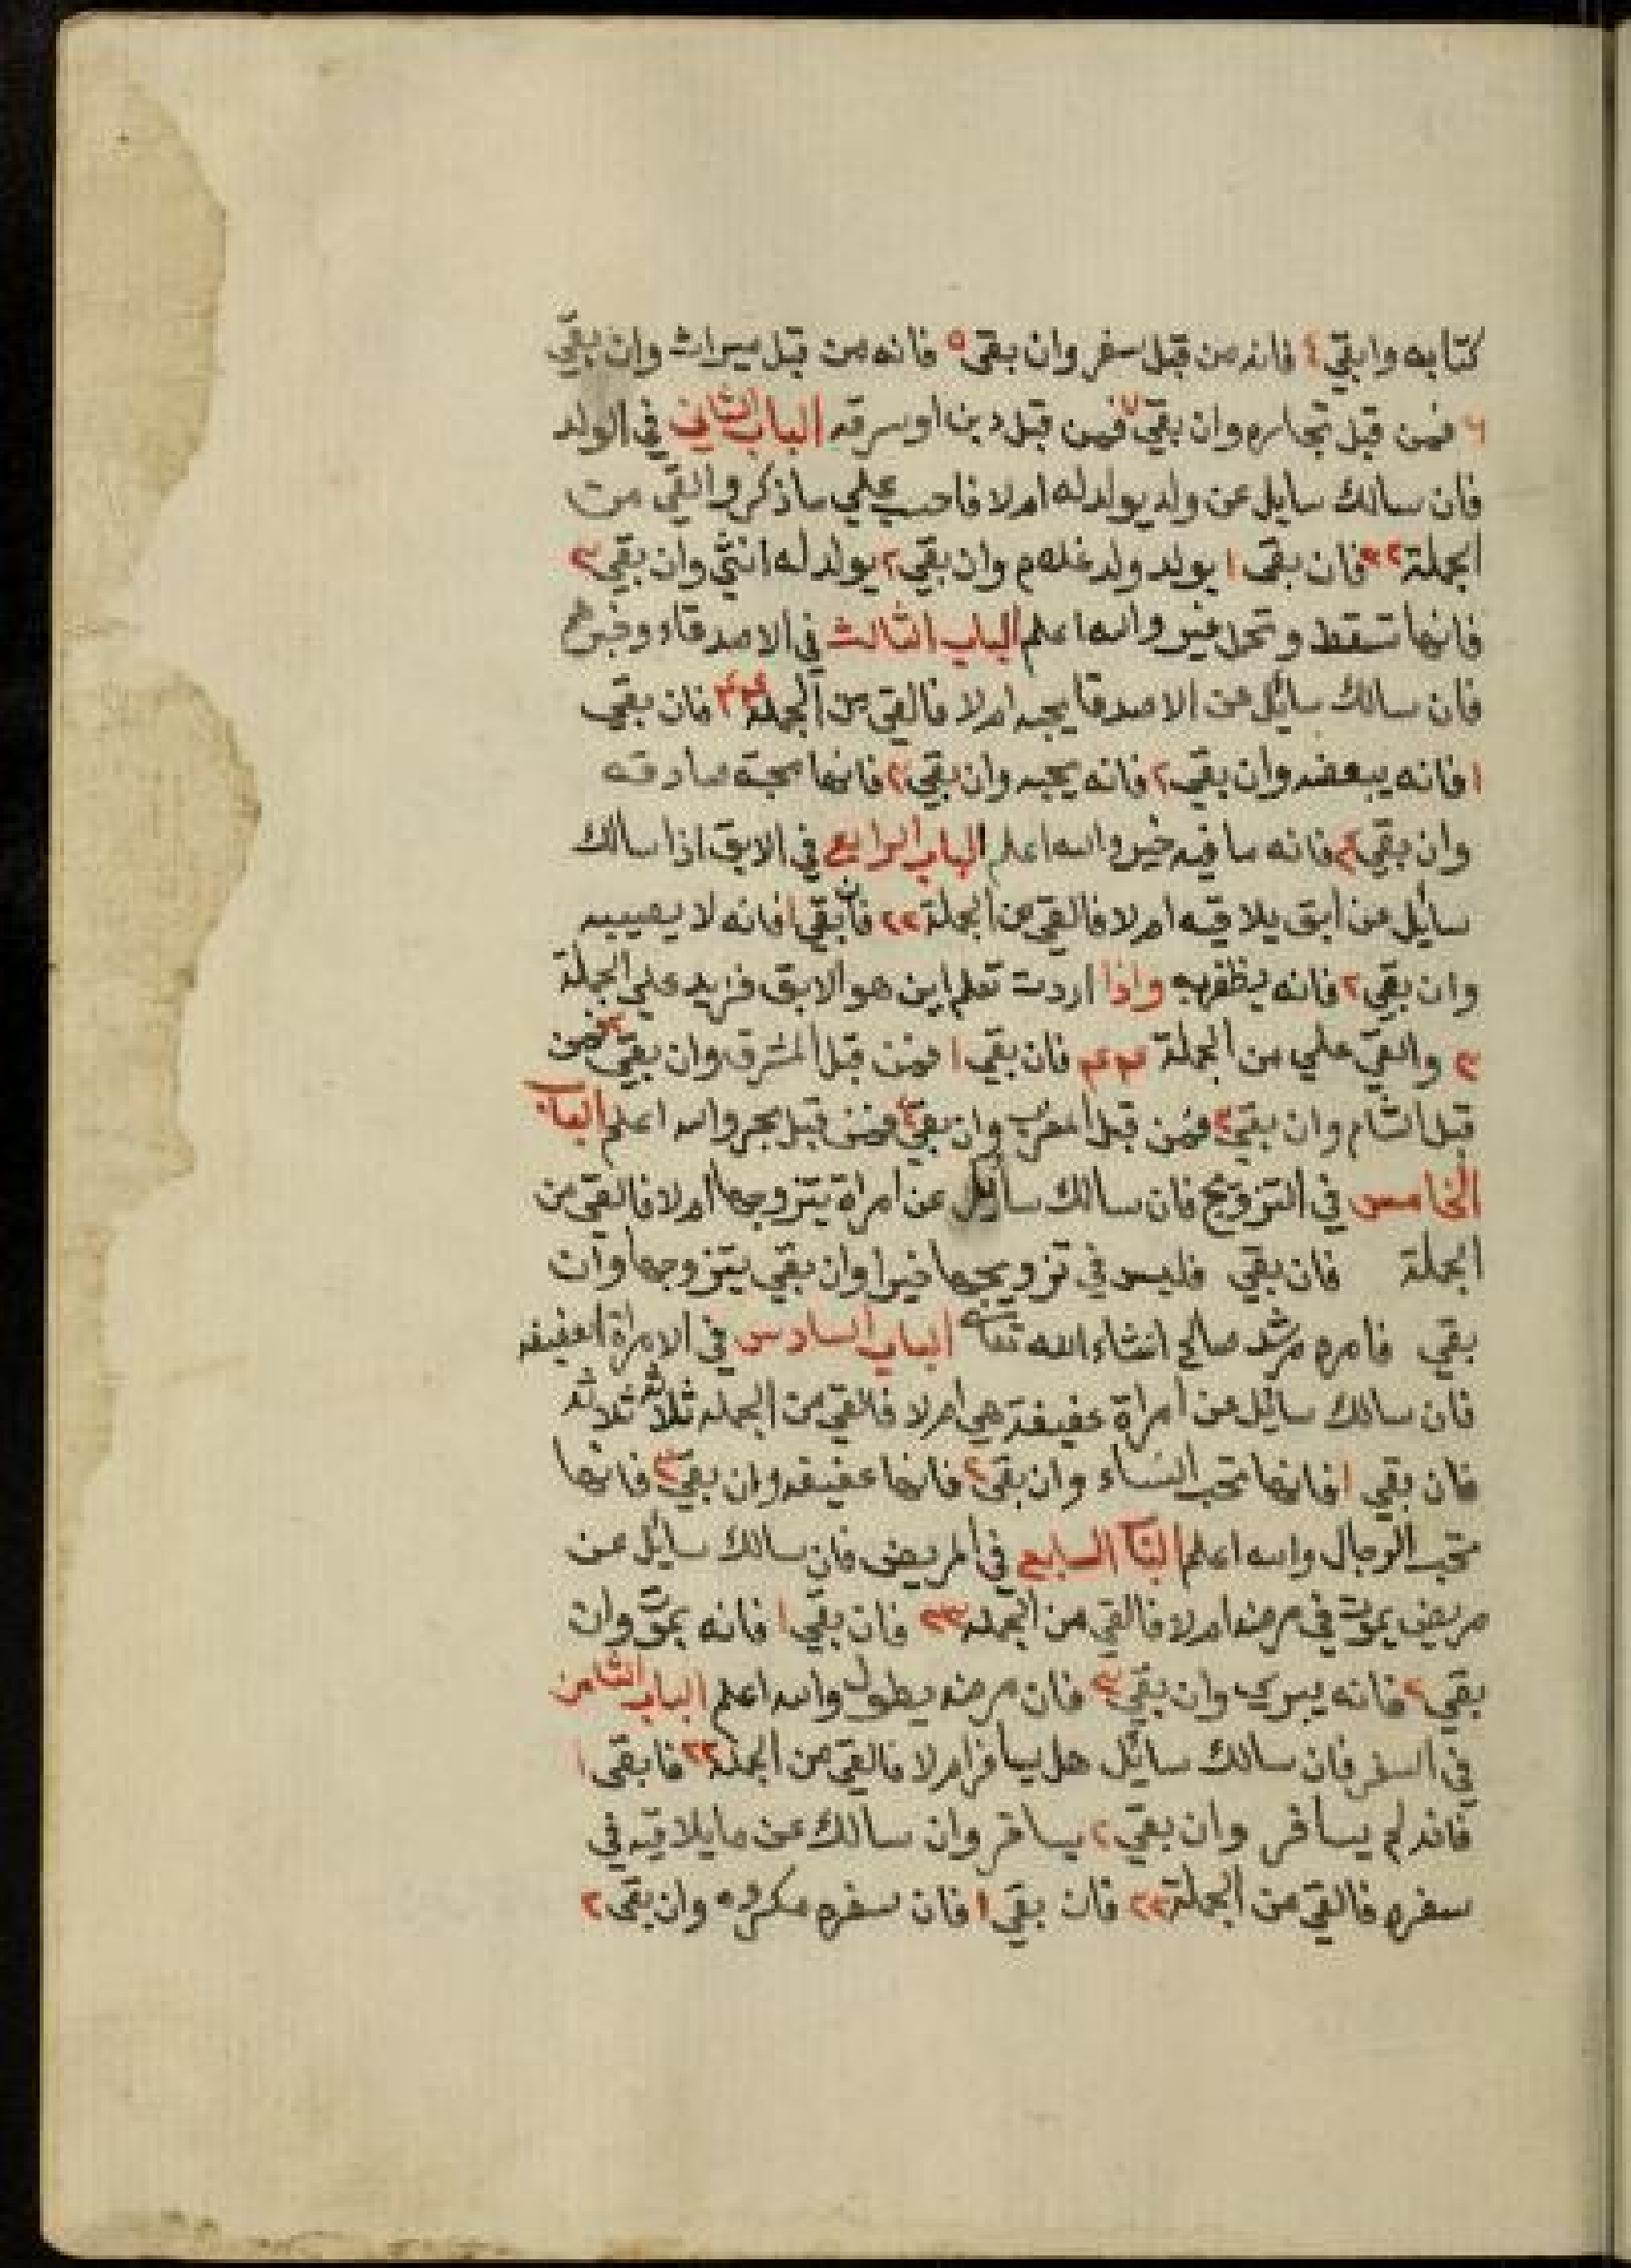 كتابه وابقي ٤ فانه من قبل سفر وان بقى ٥ فانه من قبل ميراث وان بقي
٦ فمن قبل تجاره وان بقي ٧ فمن قبل دين او سرقه الباب الثاني في الولد
فان سالك سايل عن ولد يولد له ام لا فاحسب علي ما ذكر والقي من
الجملة فان بقى ١ يولد ولد غلام وان بقي ٢ يولد له انثي وان بقي ٣
فانها تسقط وتحل غير والله اعلم الباب الثالث في الاصدقاء
فان سالك سائل عن الاصدقا يحبه ام لا فالقي من الجملة ٣٣ فان بقي
١ فانه يبعضه وان بقي ٢ فانه يحبه وان بقي ٣ فانها محبة صادقه
وان بقي ٤ فانه ما فيه خير والله اعلم الباب الرابع في الابق اذا سالك
سائل عن ابق يلاقيه ام لا فالقي من الجملة ٢٢ فان بقي ١ فانه لا يصيبه
وان بقي ٢ فانه يظفر به واذا اردت تعلم اين هو الابق فزيد علي الجملة
٣ والقي علي من الجملة ٤ ٤ فان بقي ١ فمن قبل المشرق وان بقي ٢ فمن
قبل الشام وان بقي ٣ فمن قبل المغرب وان بقي ٤ فمن قبل بحر والله اعلم الباب
الخامس في التزويج فان سالك سائل عن امراة يتزوجها ام لا فالقي من
الجملة فان بقي فليس في تزويجها خيرا وان بقي يتزوجها وان
بقي فامره مرشد صالح انشاء الله تعا الباب السادس في الامراة العفيفه
فان سالك سائل عن امراة عفيفة هي ام لا فالقي من الجمله ثلاثه ثلاثه
فان بقي ١ فانها تحب النساء وان بقى ٢ فانها عفيفه وان بقي ٣ فانها
تحب الرجال والله اعلم البا السابع في المريض فان سالك سائل عن
مريض يموت في مرضه ام لا فالقي من الجمله ٣٣ فان بقي ١ فانه يموت وان
بقي ٢ فانه يبري وان بقي ٣ فان مرضه يطول والله اعلم الباب الثامن
في السفر فان سالك سائل هل يسافر ام لا فالقي من الجملة ٢٢ فابقى ١
فانه لم يسافر وان بقي ٢ يسافر وان سالك عن ما يلاقيه في
سفره فالقي من الجملة ٢٢ فان بقي ١ فان سفره مكروه وان بقى ٢